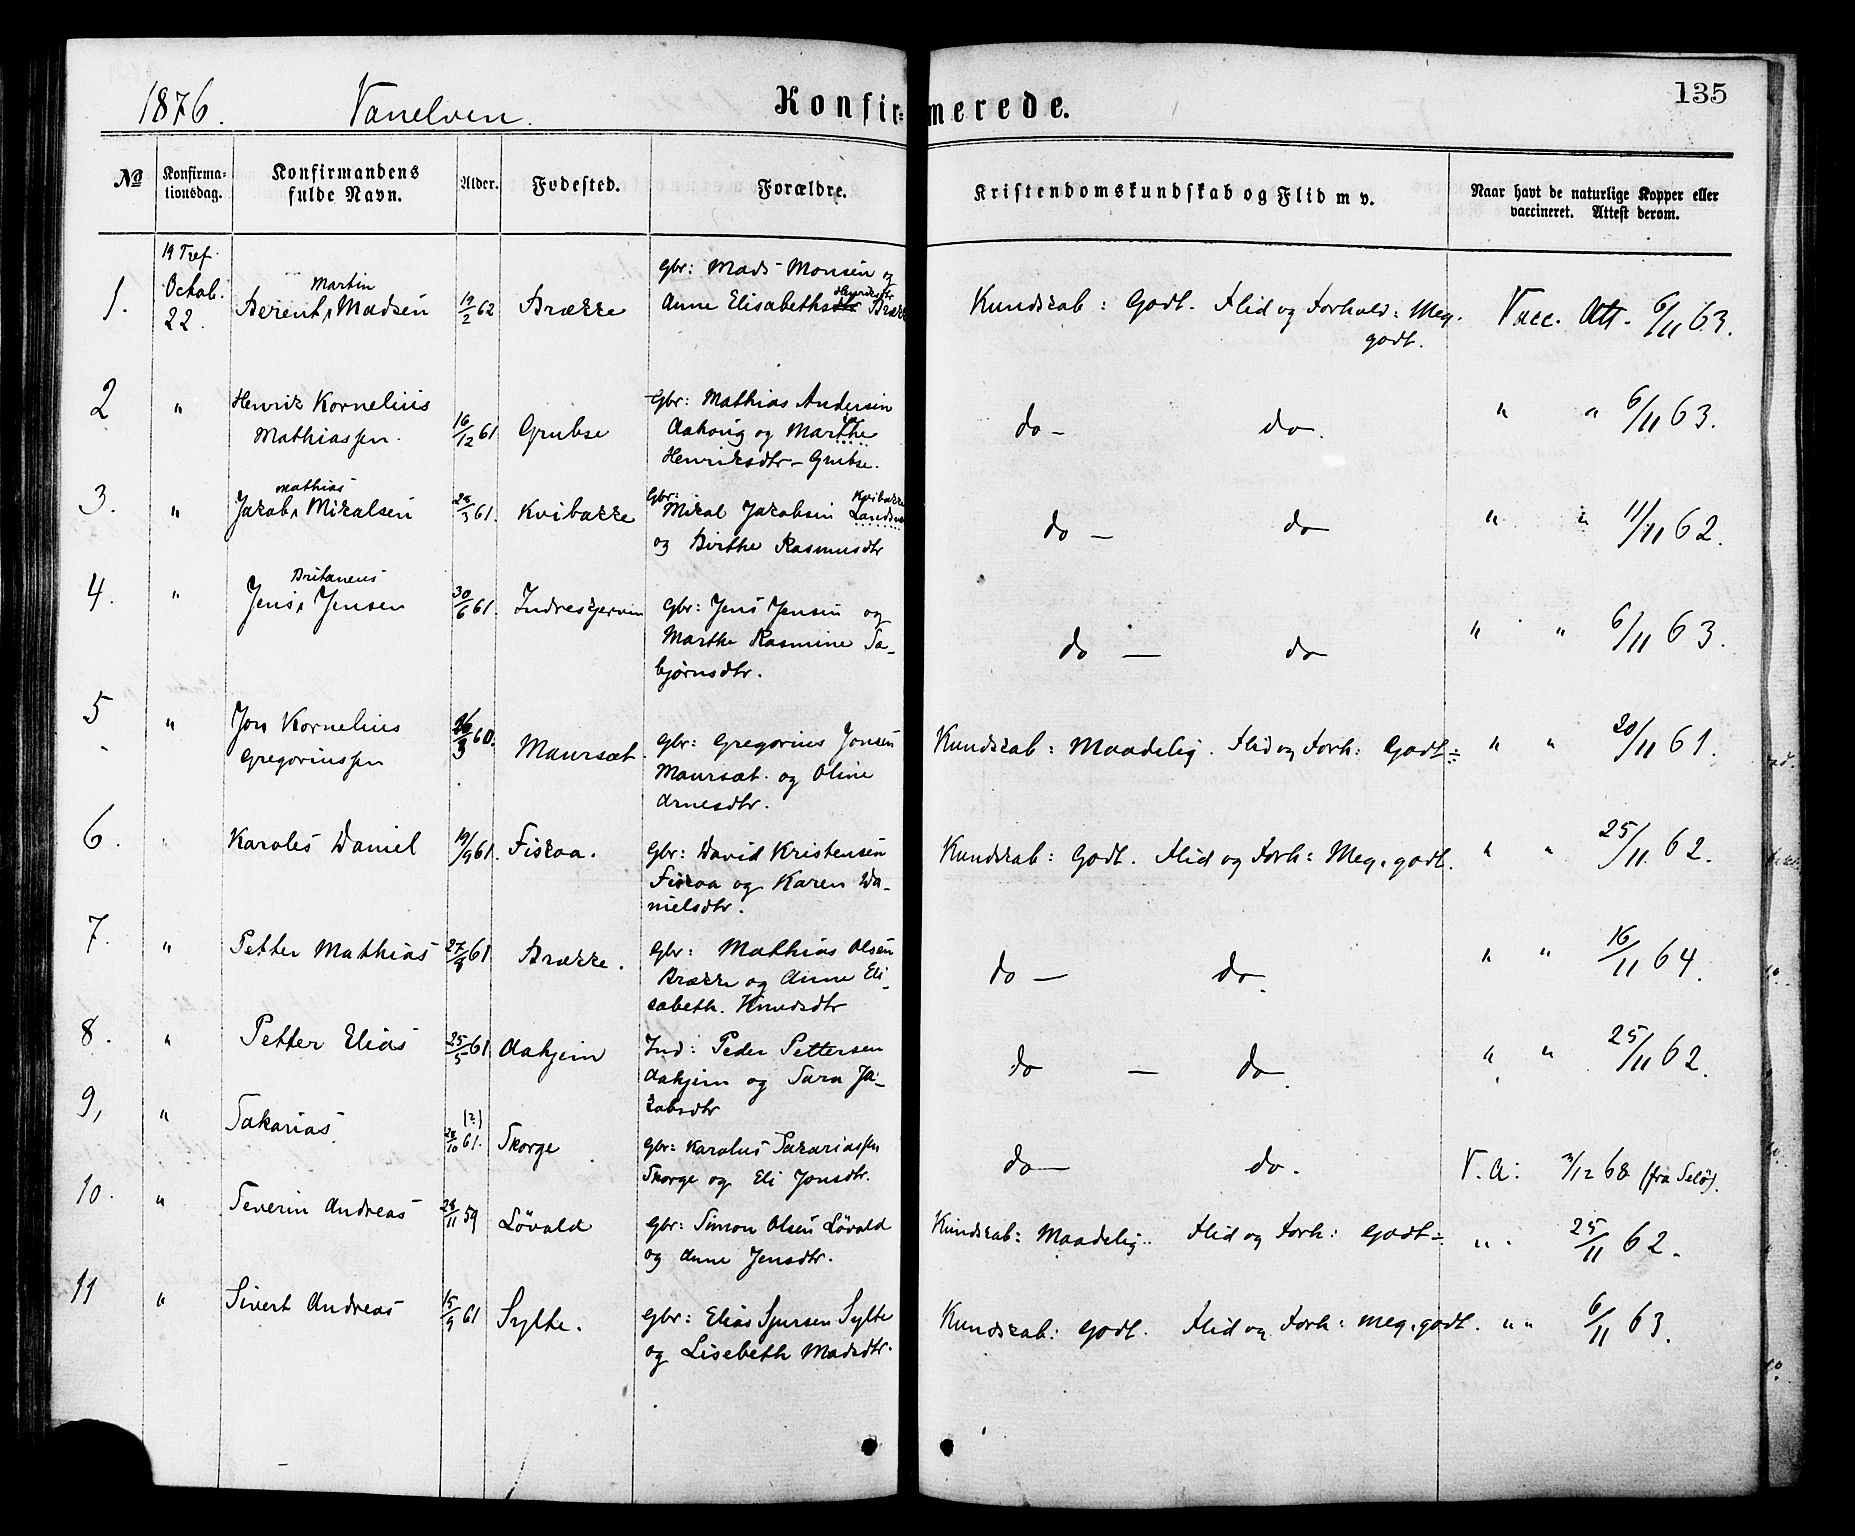 1876. Vanelven. Konfirmerede. 135
No Konfirmationsdag. Konfirmandens fulde Navn. Alder. Fodested. Forældre. Kristendomskundskab og Flid m v. Naar havt de naturlige Kopper eller vaccineret. Attest derom.
19 Tref.
Octob. Martin Gbr: Mads Monsen og
1. 22. Berent Madsen 19/2 62 Brække Anne Elisabeth Henriksdtr Kundskab: Godt. Flid og Forhold: Meg. Vacc. Att. 6/11 63.
godt.
2 " Henrik Kornelius Gbr: Mathias Andersen
Mathiassen. 16/12 61 Grubse og Marthe do - do. " " 6/11 63.
Henriksdtr - Grubse.
mathias Gbr: Kvibakke
3. " Jakob Mikalsen /3 61. Kvibakke Mikal Jakobsen do - do " " 11/11 62.
og Birthe Rasmusdtr
4. " Jens Jensen 30/6 61. Gbr: Jens Jensen og " " 6/11 63.
Marthe Rasmine Ta- do - do
bjørnsdtr.
5 " Jon Kornelius 60. Maursæt. Gbr: Gregorius Jonsen Kundskab: Maadelig. Flid og Forh: Godt÷ " " 20/11 61.
Gregoriussen Maursæt og Oline
Arnesdtr.
6. " Karolus Daniel 19/9 61. Fiskaa. Gbr: David Kristensen Kundskab: Godt. Flid og Forh: Meg. godt. " " 25/11 62.
Fiskaa og Karen Da-
nielsdtr.
7. " Petter Mathias 61 Brække. Gbr: Mathias Olsen do - do. " " 16/11 64.
Brække og Anne Eli-
sabeth. Knudsdtr
8. " Petter Elias 25/5 61 Aahjem Ind: Peder Pettersen do - do. " " 25/11 62.
Aahjem og Sara Ja-
kobsdtr
9, " Sakarias (?) /10 61. Skorge Gbr: Karolus Sakariassen do - do. V. A: 3/12 68 (fra Selø).
Skorge og Eli Jonsdtr.
10. " Severin Andreas /11 59 Løvold Gbr: Simon Olsen Løvold Kundskab: Maadelig. Flid og Forh: Godt÷ " " 25/11 62.
og Anne Jensdtr.
11 " Sivert Andreas 15/9 61 Sylte. Gbr: Elias Sjursen Sylte Kundskab: Godt. Flid og Forh: Meg. godt. " " 6/11 63.
og Lisebeth Madsdtr.